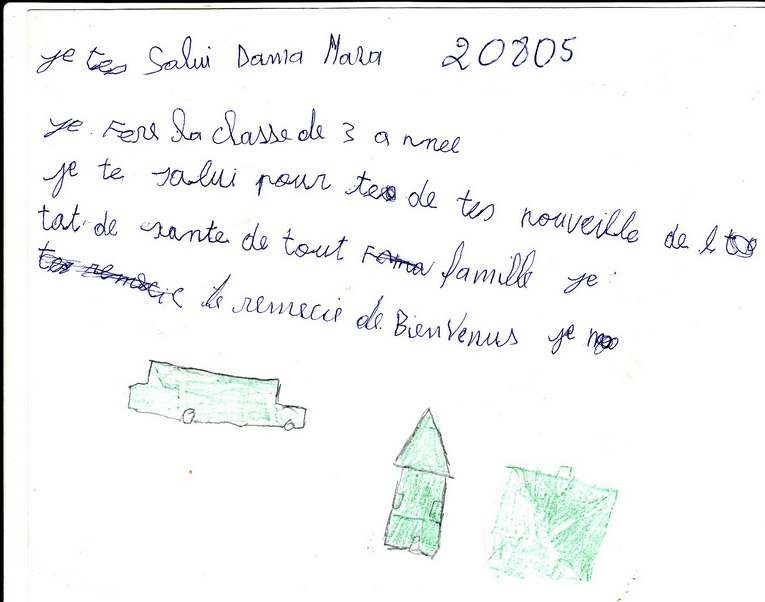 je tes Salui Dama Mara 20805
je. Fere la classe de 3 a nnee
je te salui pour de tes nouveille de l
tat de sante de tout famille je
te remecie de BienVenus je